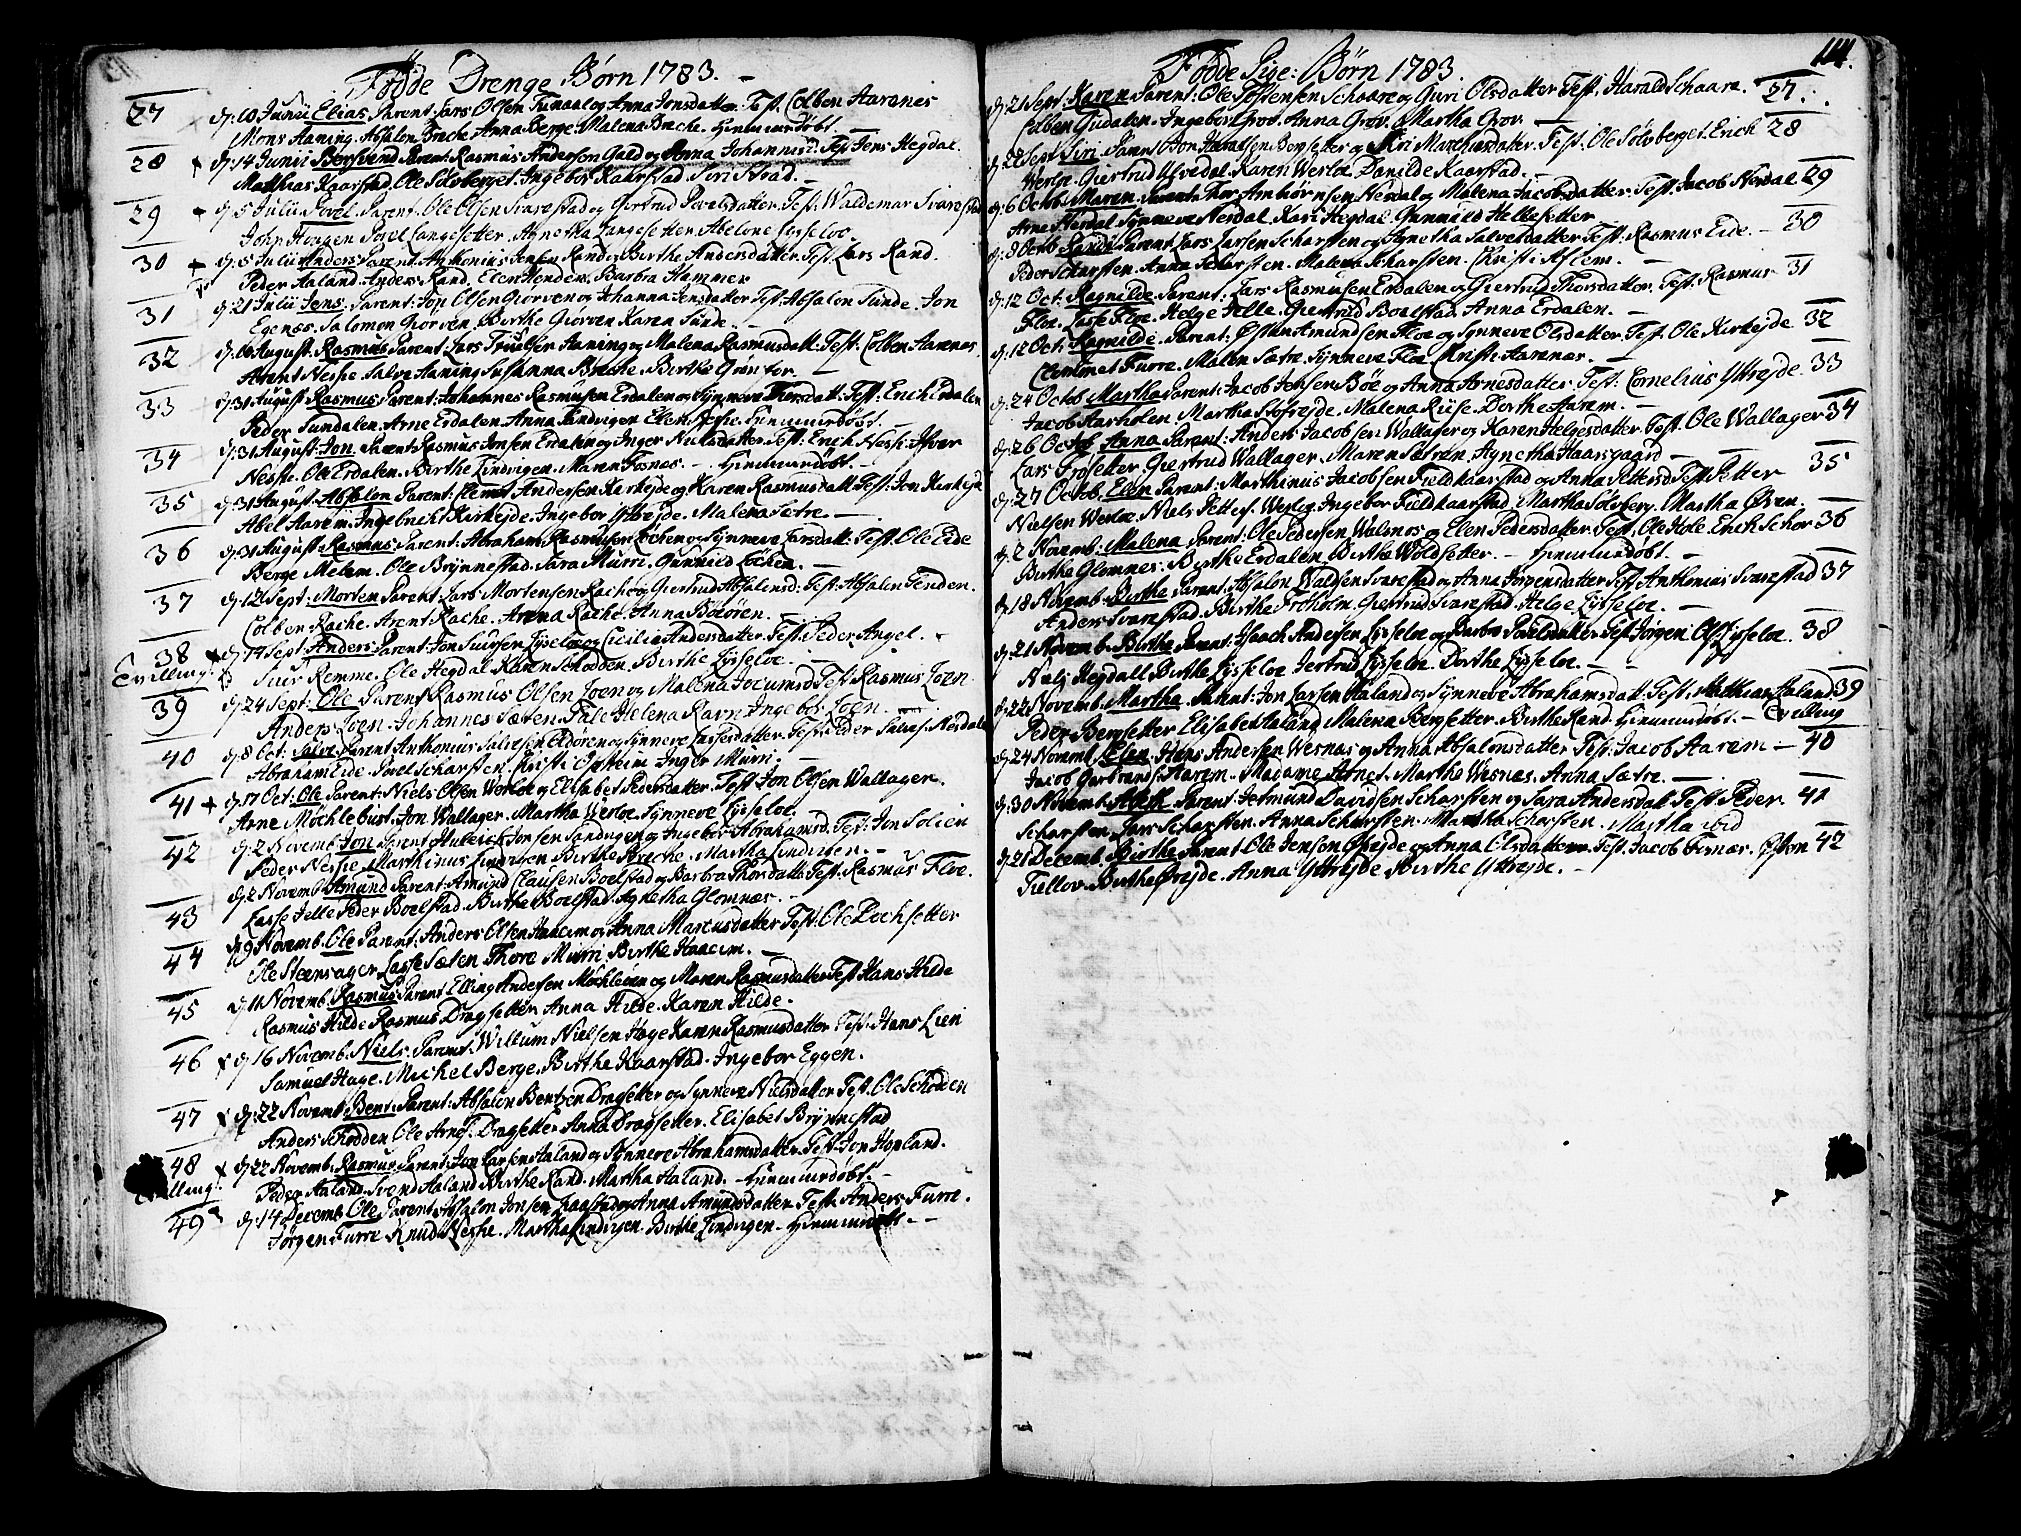 Fødde Drenge Børn 1783.
27 d: 10 Junii Elias Parent: Lars Olsen Tunaal og Anna Jonsdatter. Test. Colben Aarenes
Mons Haning. Absalon Breche Anna Berge. Malena Breche. Hiemmedøbt.
28 d: 14 Junii Parent: Rasmus Andersen Gald og Anna Johannisd: Test Jens Hegdal
Matthias Kaarstad. Ole Solvberget. Ingebor Kaarstad. Siri
29 d: 5 Julii Povel. Parent. Ole Olsen Svarestad og Giertrud Povelsdatter. Test. Waldemar Svarestad
John Haugen Povel Langesetter. Agnetha Langesetter. Abelone Lysseloe.
30 d: 5 Julii Anders Parent: Anthonius Jensen Rand og Birthe Andersdatter. Test. Lars Rand.
Peder Aaland. Anders Rand. Elen Henden. Barbra Hammer
31 d: 21 Julii Jens. Parent: Jon Olsen Giorven og Johanna Jensdatter Test: Absalon Sunde. Jon
Egenæs. Salomon Giorven. Birthe Giorven Karen Sunde.
32 d: 10 August: Rasmus Parent: Lars Truelsen Haning og Malena Rasmusdatt: Test. Colben Aarenæs
Arent Nesse Salve Haning Susanna Breche. Birthe Grønfor.
33 d: 31 August Rasmus Parent: Johannes Rasmusen Erdalen og Synneve Thorsdatt: Test: Erich Erdalen
Peder Sundalen. Arne Erdalen. Anna Lindvigen Elen Nesse. Hiemmedøbt.
34 d: 31 August: Jon. Parent Rasmus Jonsen Erdalen og Inger Nielsdatter. Test: Erich Ness. Ifver
Nesse. Ole Erdalen. Birthe Lindvigen. Maren Fosnes. Hiemmedøbt.
35 d: 31 August: Absalon Parent: Clemet Andersen Kirkejde og Karen Rasmusdatt Test: Jon Kirkejde
Abel Aarem. Ingebrecht Kirkejde. Ingebor Yttrejde. Malena Sætre.
36 d: 31 August: Rasmus Parent: Abraham Rasmusen Løchen og Synneve Larsdatt: Test: Ole Eide
Berge Melem. Ole Brynnestad. Sara Murri. Gunnild Løchen.
37 d: 14 Sept: Morten Parent: Lars Mortensen Rache og Giertrud Absalonsd. Test: Absalon Tenden.
Colben Rache. Arent Rache. Anna Rache. Anna Bøeøren
38 d: 14 Sept: Anders Parent: Jon Siursen Lysseloe og Cicilia Andersdatter Test: Peder Angel.
Tvilling: Siur Remme. Ole Hegdal Karen Schodden. Birthe Lysseloe.
39 d: 24 Sept: Ole Parent Rasmus Olsen Loen og Malena Jocumsd Test Rasmus Loen
Anders Loen. Johannes Sæten. Helena Ravn Ingebor Loen
40 d: 8 Oct: Salve Parent Anthonius Salvesen Eldøren og Synneve Lassesdatter. Test: Peder Salves. Nesdale
Abraham Eide. Povel Scharsten. Christi Opheim Inger Murri.
41 d: 17 Oct: Ole Parent: Niels Olsen Werloe og Elisabet Pedersdatter. Test Jon Olsen Wallager.
Arne Mochlebust. Jon Wallager. Martha Werloe. Synneve Lysseloe.
42 d: 2 Novemb Jon Parent Hulerich Jonsen Sandvigen og Ingebor Abrahamsd. Test: Jon Solien
Peder Nesse. Marthinus Lindvigen Birthe Breche. Martha Lindvigen.
43 d: 2 Novemb: Amund Parent: Amund Clausen Boelstad og Barbra Thorsdatt: Test: Rasmus Floe.
Lasse Jelle Peder Boelstad. Birthe Boelstad. Agnetha Glomnæs.
44 d: 9 Novemb. Ole Parent: Anders Olsen Haaeim og Anna Marcusdatter Test: Ole Dochsetter
Ole Steensager Lasse Sæten Thore Murri Birthe Haaeim.
45 d: 11 Novemb. Rasmus Parent Elling Andersen Mochleøen og Maren Rasmusdatter Test Hans Hilde
Rasmus Hilde Rasmus Dragsetter Anna Hilde. Karen Hilde.
46 d: 16 Novemb. Niels. Parent: Willum Nielsen Hage Karen Rasmusdatter Test: Hans Lien
Samuel Hage. Michel Berge. Birthe Kaarstad. Ingebor Eggen.
47 d: 22 Novemb: Bent: Parent: Absalon Bentzen Dragsetter og Synneve Nielsdatter Test: Ole Schodden
Anders Schodden Ole Arnes. Dragsetter Anna Dragsetter. Elisabet Brynnestad
48 d: 22 Novemb. Rasmus Parent: Jon Larsen Aaland og Synneve Abrahamsdatter. Test Jon Hopland.
Tvilling: Peder Aaland. Svend Aaland Birthe Rand. Martha Aaland. Hiemmedøbt.
49 d: 14 Decemb. Ole. Parent Absalon Jonsen og Anna Amundsdatter. Test: Anders Furre.
Jørgen Furre Knud Nesse. Martha Lindvigen. Birthe Lindvigen. Hiemmedøbt.
Fødde Pige: Børn 1783.
114.
d: 21 Sept. Karen Parent: Ole Tostensen Schaare og Guri Olsdatter Test. Harald Schaare. 27.
Colben Giudalen. Ingebor Grov. Anna Grov. Martha Grov.
d: 22 Sept Siri Parent Jon Bergsetter og Siri Marthiusdatter. Test: Ole Solvberget. Erich 28
Werloe. Giertrud Ulvedal Karen Werloe. Danilde Kaarstad.
d: 6 Octob. Maren. Parent: Thor Arnbiørnsen Nesdal og Malena Jacobsdatter. Test. Jacob Nesdal 29
Arne Nesdal Synneve Nesdal. Kari Hegdal. Gunnild Hellesetter.
d: 8 Octb Randi Parent: Lars Larsen Scharsten og Agnetha Salvesdatter Test: Rasmus Eide. 30
Peder Scharsten. Anna Scharsten. Malena Scharsten. Christi Aslem.
d: 12 Oct: Ragnilde Parent: Lars Rasmusen Erdalen og Giertrud Thorsdatter. Test: Rasmus 31
Floe. Lasse Floe. Helge Jelle. Giertrud Boelstad. Anna Erdalen.
d: 12 Oct: Ragnilde. Parent: Østen Amundsen Floe og Synneve Olsdatter. Test. Ole Kirkejde 32
Clemmet Furre. Malen Sætre. Synneve Floe Christi Aarenæs.
d: 24 Octob Martha Parent: Jacob Jensen Bøe og Anna Arnesdatter. Test: Cornelius Yttrejde 33
Jacob Aarholen. Martha Stofrejde. Malena Riise. Dorthe Aarem.
d: 26 Octob Anna Parent: Anders Jacobsen Wallager og Karen Helgesdatter. Test. Ole Wallager 34
Lars Frosetter. Giertrud Wallager. Maren Sætren. Agnetha Haarsgaard
d: 27 Octob. Elen Parent: Marthinus Jacobsen Field Kaarstad og Anna Pettersd Test Petter 35
Nielsen Werloe. Niels Petters. Werloe. Ingebor Field Kaarstad. Martha Solvberg. Martha Øvren.
d: 2 Novemb: Malena Parent: Ole Pedersen Walsnæs og Elen Pedersdatter. Test. Ole Hole. Erich Schor 36
Birthe Glomnes. Birthe Erdalen. Birthe Woldsetter. Hiemmedøbt.
d: 18 Novemb. Birthe Parent: Absalon Waldsen Svarestad og Anna Jørgensdatter Test Anthonius Svarestad 37
Anders Svarestad. Birthe Frøholm. Giertrud Svarestad. Helge Lysseloe.
d: 21 Novemb. Birthe Parent: Isaach Andersen Lysseloe og Barbra Povelsdatter Test Jørgen Ols Lysseloe. 38
Niels Hegdall Birthe Lysseloe Jertrud Lysseloe. Dorthe Lysseloe.
d: 22 Novemb. Martha. Parent: Jon Larsen Aaland og Synneve Abrahamsdatt: Test: Matthias Aaland 39
Peder Bergsetter Elisabet Aaland Malena Bergsetter. Birthe Rand. Hiemmedøbt. Tvilling
d: 24 Novemb. Elsen. Hans Andersen Wesnæs og Anna Absalonsdatter Test: Jacob Aarem 40
Jacob Garbrands. Aarem. Madame Arnet. Marthe Wesnæs. Anna Sætre.
d: 30 Novemb. Parent: Jetmund Davidsen Scharsten og Sara Andersdatt Test. Peder 41
Scharsten. Lars Scharsten. Anna Scharsten. Martha Scharsten. Martha ibid
d: 21 Decemb. Birthe Parent Ole Jensen Øvrejde og Anna Olsdatter. Test. Jacob Fosnæs. Østen 42
Tiellov. Birthe Øvrejde. Anna Yttrejde Birthe Yttrejde.